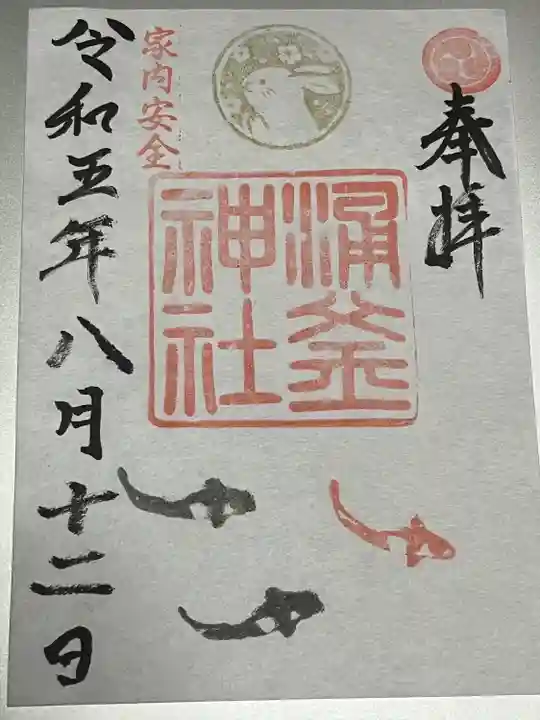 奉拝
涌釜
神社
家内安全
令和五年八月十二日